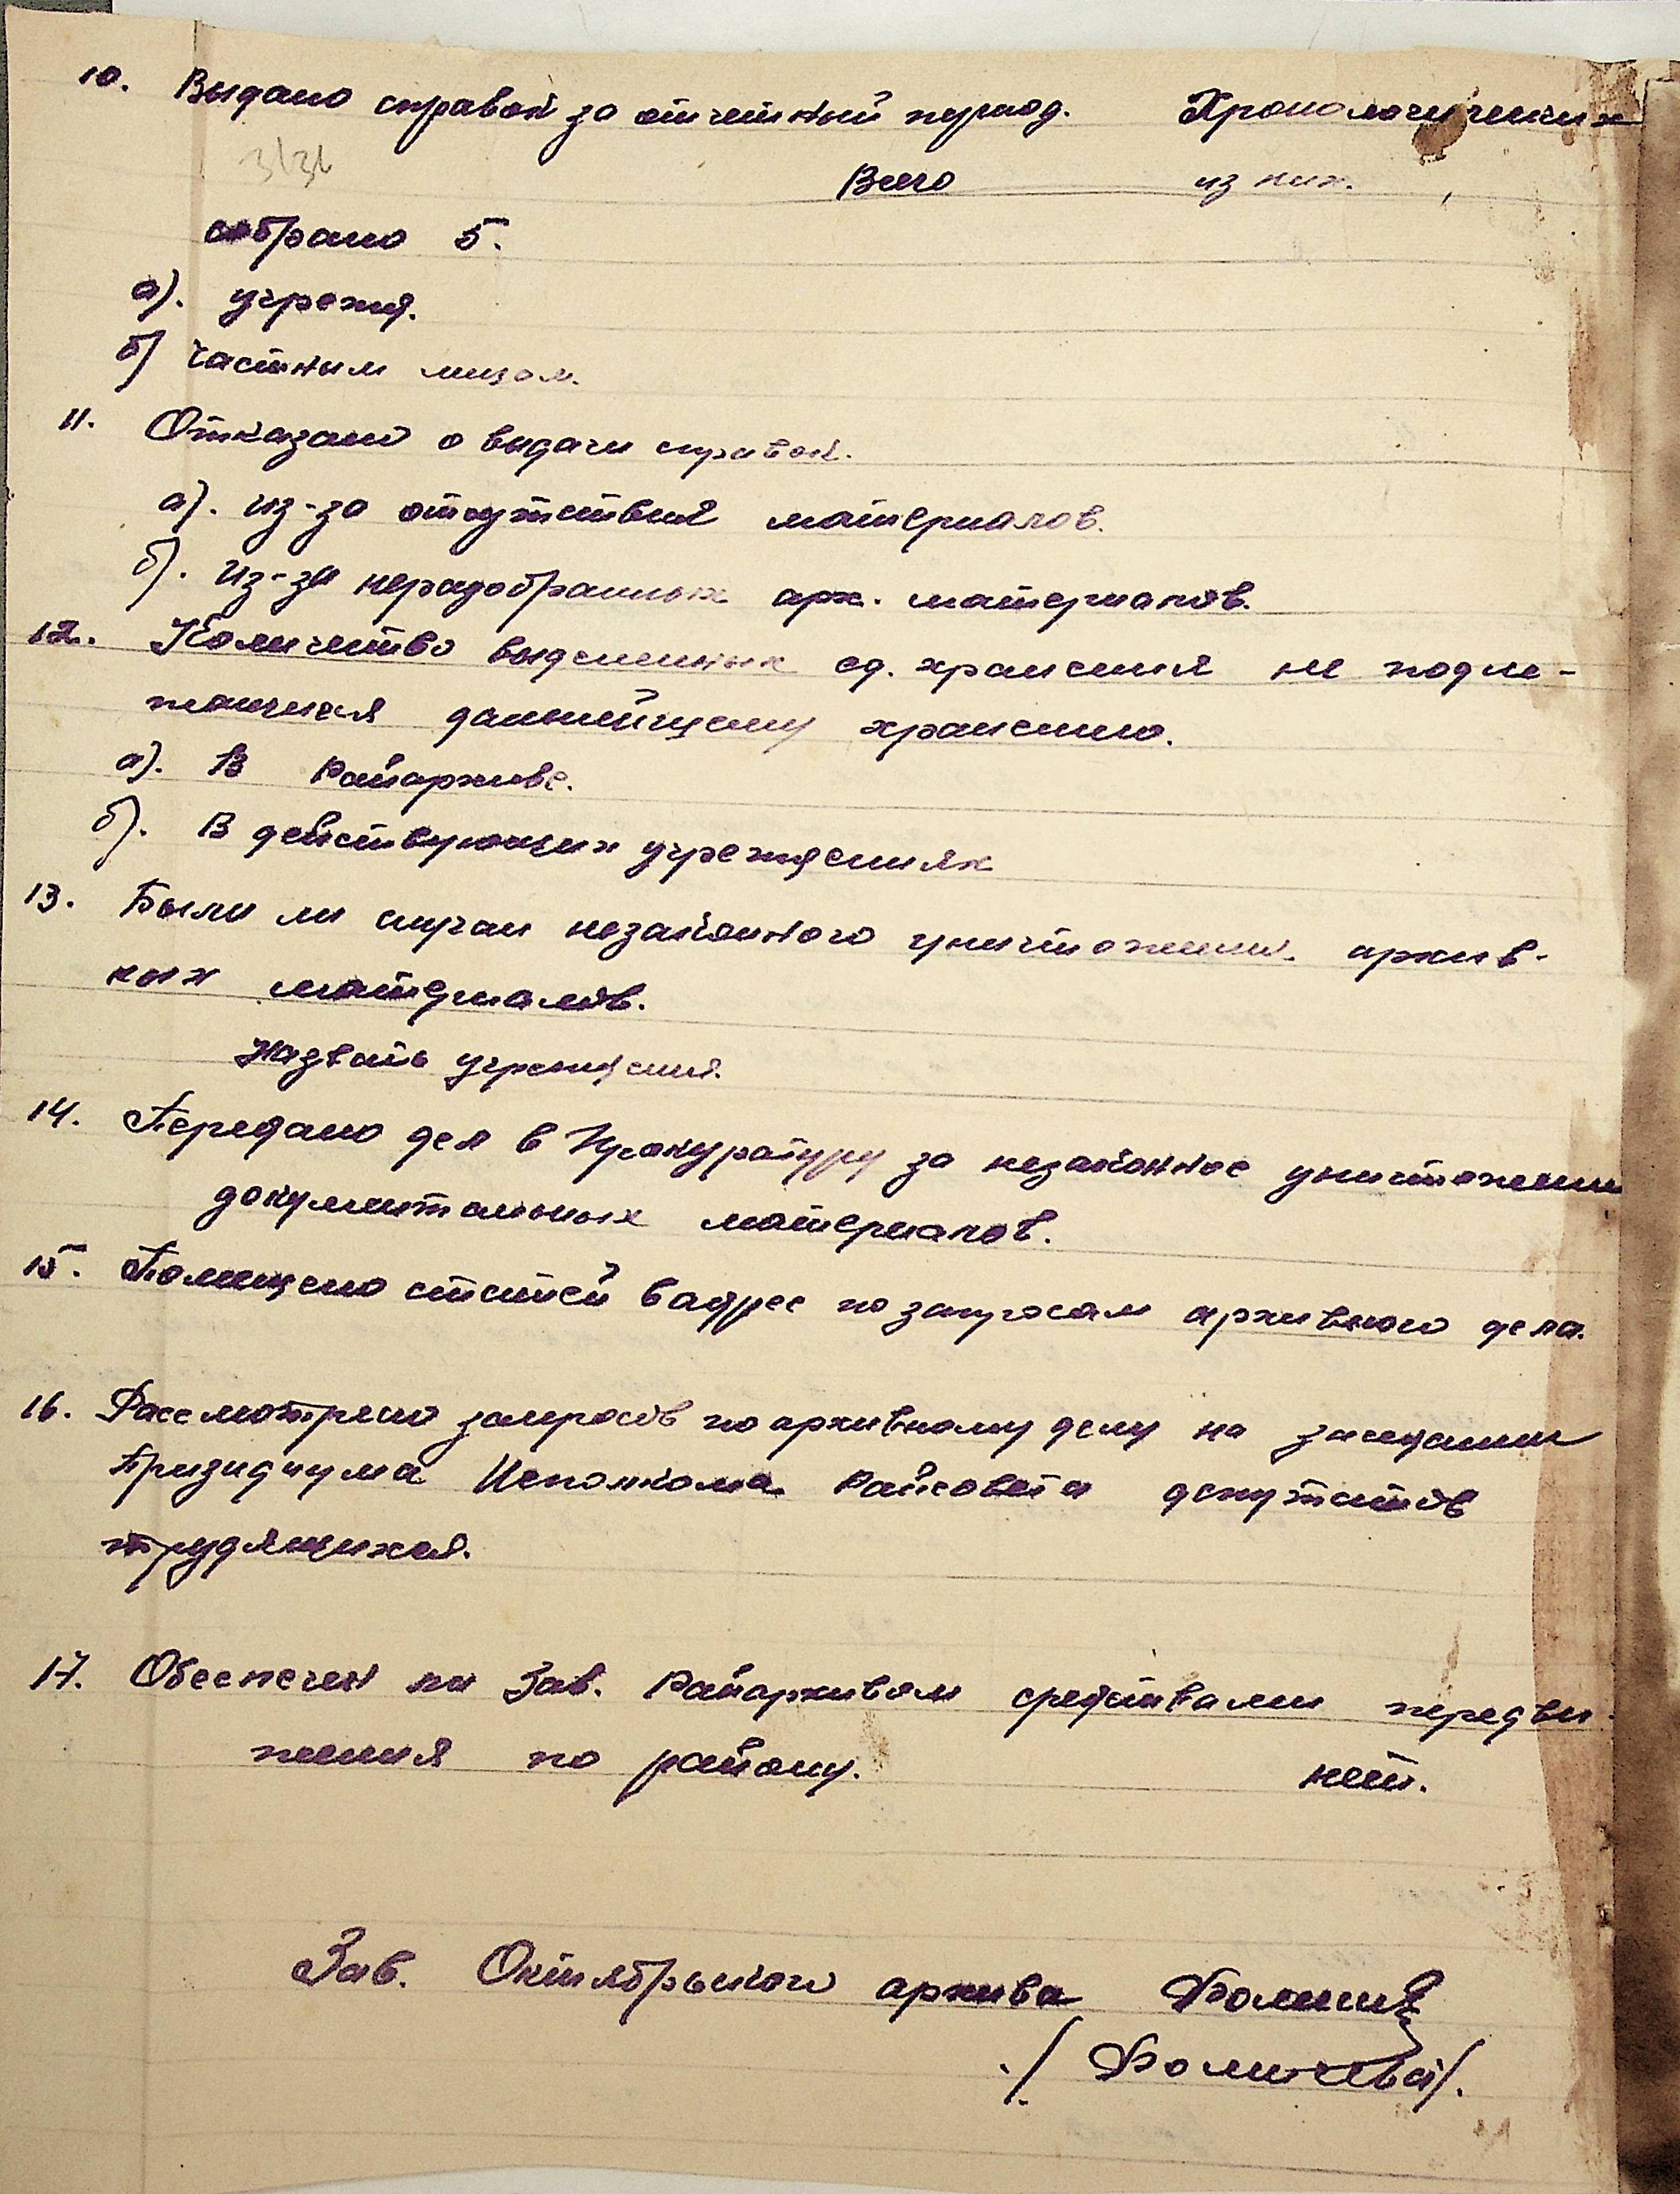 10. Выдано справок за отчетный период. Хронологических
Всего из них.
собрано 5.
а). учрежд.
б) частным лицам.
11. Отказано о выдачи справок.
а). из-за отсутствия материалов.
б). Из-за неразобранных арх. материалов.
12. Количество выделенных ед. хранения не подле-
жащихся дальнейшему хранению.
а). В Райархиве.
б). В действующих учреждениях
13. Были ли случаи незаконного уничтожения архив-
ных материалов.
Назвать учреждения.
14. Передано дел в Прокуратуру за незаконное уничтожение
документальных материалов.
15. Помещено статей в адрес по запросам архивного дела.
16. Рассмотрено запросов по архивному делу на заседании
Призидиума Исполкома Райсовета депутатов
трудящихся.
17. Обеспечен ли Зав. Райархивом средствами передви-
жения по району. нет.
Зав. Октябрьского архива Фомичев
/Фомичева/.